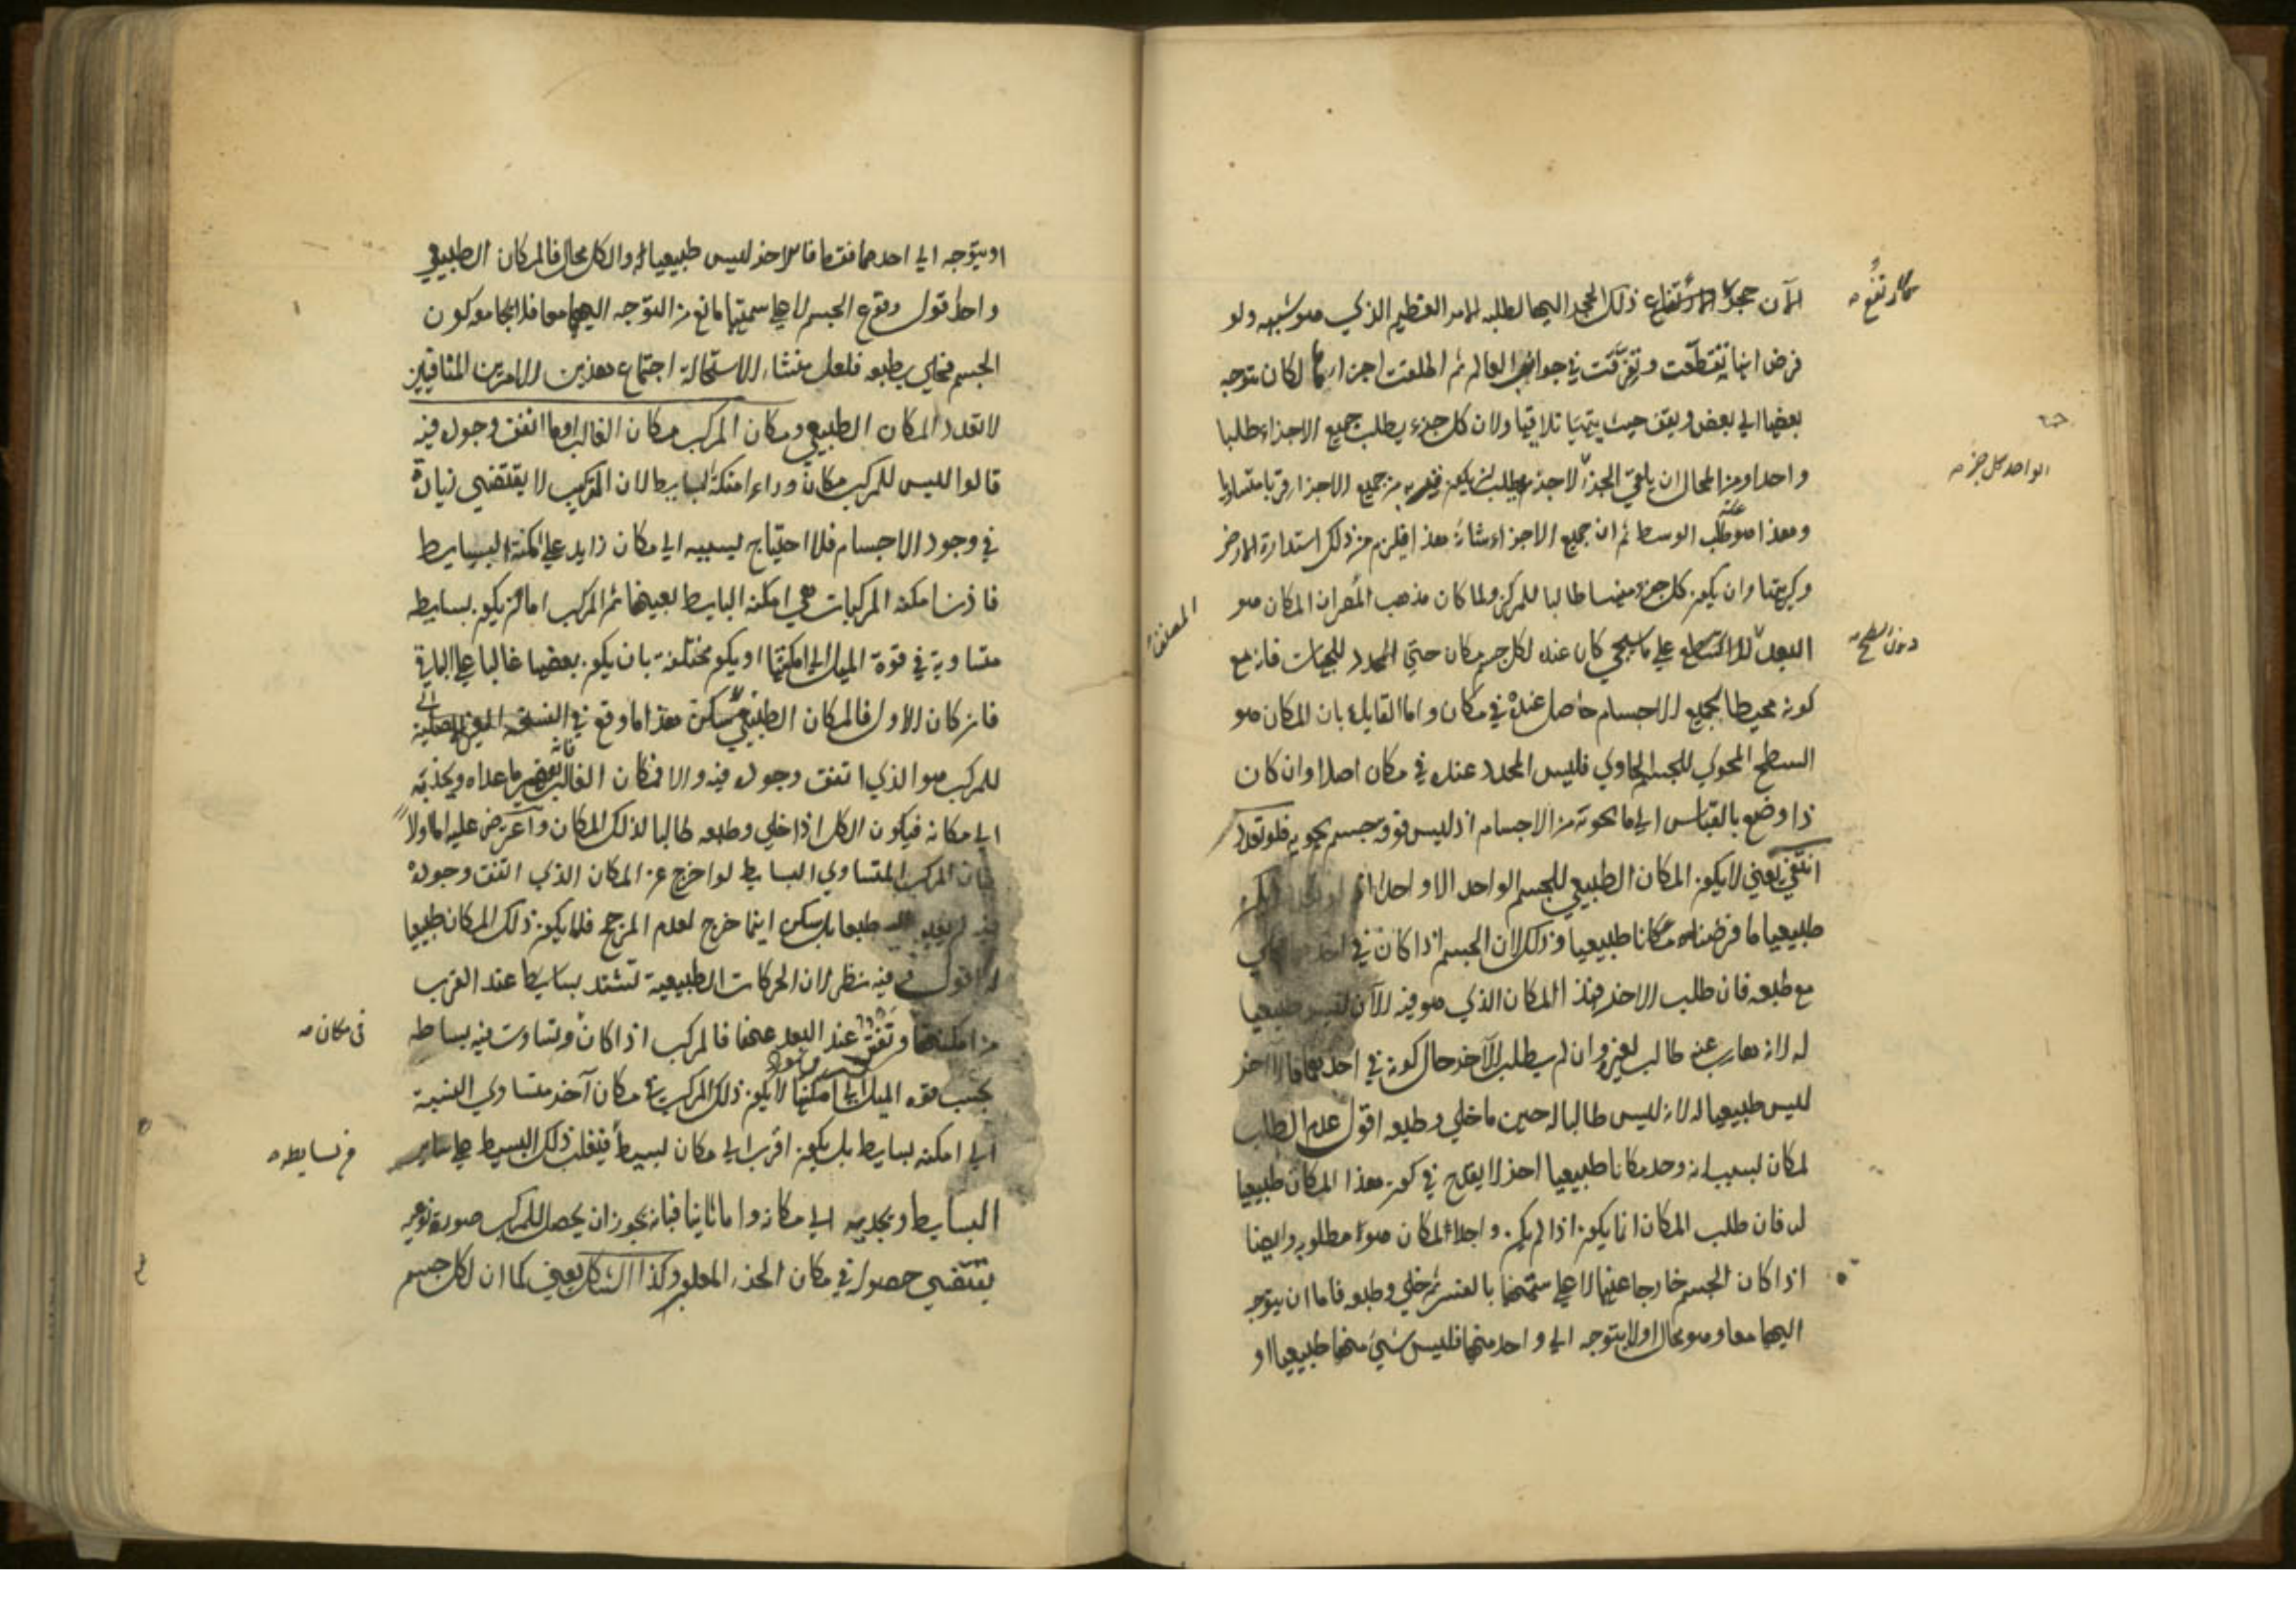 الآن حجر لارتفع ذلك الحجر اليها لطلبه للامر العظيم الذي هو شبيهه ولو
فرض انها تقطعت وتفرقت في جوانب العالم ثم اطلعت اجزاؤها لكان يتوجه
بعضها الى بعض ويقف حيث يتهيا تلاقيها ولان كل جزء يطلب جميع الاجزاء طلبا
واحدا ومن المحال ان يلقى الجزء الاجزء يطلب ان يكون قربه من جميع الاجزاء قربا متساويا
وهذا هو طلب الوسط ثم ان جميع الاجزاء شانه هذا فيلزم من ذلك استدارة الارض
وكريتها وان يكون كل جزء منها طالبا للمركز ولما كان مذهب المص ان المكان هو
البعد على ما سيجي كان عنده لكل جسم مكان حتى المحدد للجهات فانه مع
كونه محيطا بجميع الاجسام حاصل عنده في مكان واما القايل بان المكان هو
السطح المحوي للجسم الحاوي فليس المحدد عنده في مكان اصلا وان كان
ذا وضع بالقياس الى ما يحويه من الاجسام اذ ليس فوقه جسم يحويه فلو تعدد
انتفى يعني لا يكون المكان الطبيعي للجسم الواحد الا واحدا اذ لو تعدد لم يكن
طبيعيا ما فرضناه مكانا طبيعيا وذلك لان الجسم اذا كان في احدهما وخلي
مع طبعه فان طلب الاخر فهذا المكان الذي هو فيه الآن ليس طبيعيا
له لانه هارب عنه طالب لغيره وان لم يطلب الآخر حال كونه في احدهما فالاخر
ليس طبيعيا له لانه ليس طالبا له حين ما خلي وطبعه اقول عدم الطلب
لمكان بسبب انه وجد مكانا طبيعيا اخر لا يقدح في كون هذا المكان طبيعيا
له فان طلب المكان انما يكون اذا لم يكن واجدا لمكان هو مطلوبه وايضا
اذا كان الجسم خارجا عنهما لا على سمتهما بالقسر ثم خلي وطبعه فاما ان يتوجه
اليهما معا وهو محال اولا يتوجه الى واحد منهما فليس شيء منهما طبيعيا او
الواحد كل جزء
دون السطح
المصنف
او يتوجه الى احدهما فقط فالاخر ليس طبيعيا له والكل محال فالمكان الطبيعي
واحد اقول وقوع الجسم لا على سمتهما مانع من التوجه اليهما معا فلا يجامع كون
الجسم مخلى بطبعه فلعل منشاء الاستحالة اجتماع هذين الامرين المتنافيين
لا تعدد المكان الطبيعي ومكان المركب مكان الغالب او ما اتفق وجوده فيه
قالوا ليس للمركب مكان وراء امكنة البسايط لان التركيب لا يقتضي زيادة
في وجود الاجسام فلا احتياج بسببه الى مكان زايد على امكنة البسايط
فاذن امكنة المركبات هي امكنة البسايط بعينها ثم المركب اما ان يكون بسايطه
متساوية في قوة الميل الى امكنتها او يكون مختلفة بان يكون بعضها غالبا على الباقي
فان كان الاول فالمكان الطبيعي هذا ما وقع في النسخة
للمركب هو الذي اتفق وجوده فيه والا فمكان الغالب فانه يقهر ما عداه ويجذبه
الى مكانه فيكون الكل اذا خلي وطبعه طالبا لذلك المكان واعترض عليه اما اولا
فبان المركب المتساوي البسايط لو اخرج عن المكان الذي اتفق وجوده
فيه لم يعد اليه طبعا بل سكن اينما خرج لعدم المرجح فلا يكون ذلك المكان طبيعيا
له اقول فيه نظر لان الحركات الطبيعية تشتد بسايطا عند القرب
من امكنتها وتفتر عند البعد عنها فالمركب اذا كان وتساوت فيه بساطه
بحسب قوة الميل الى امكنتها لا يكون ذلك المركب في مكان آخر متساوي النسبة
الى امكنة بسايطه بل يكون اقرب الى مكان بسيط فيغلب ذلك البسيط على ساير
البسايط ويجذبه الى مكانه واما ثانيا فبانه يجوز ان يحصل للمركب صورة نوعية
يقتضي حصوله في مكان الجزء المغلوب وكذا الشكل يعني كما ان لكل جسم
في مكان
من بسايطه